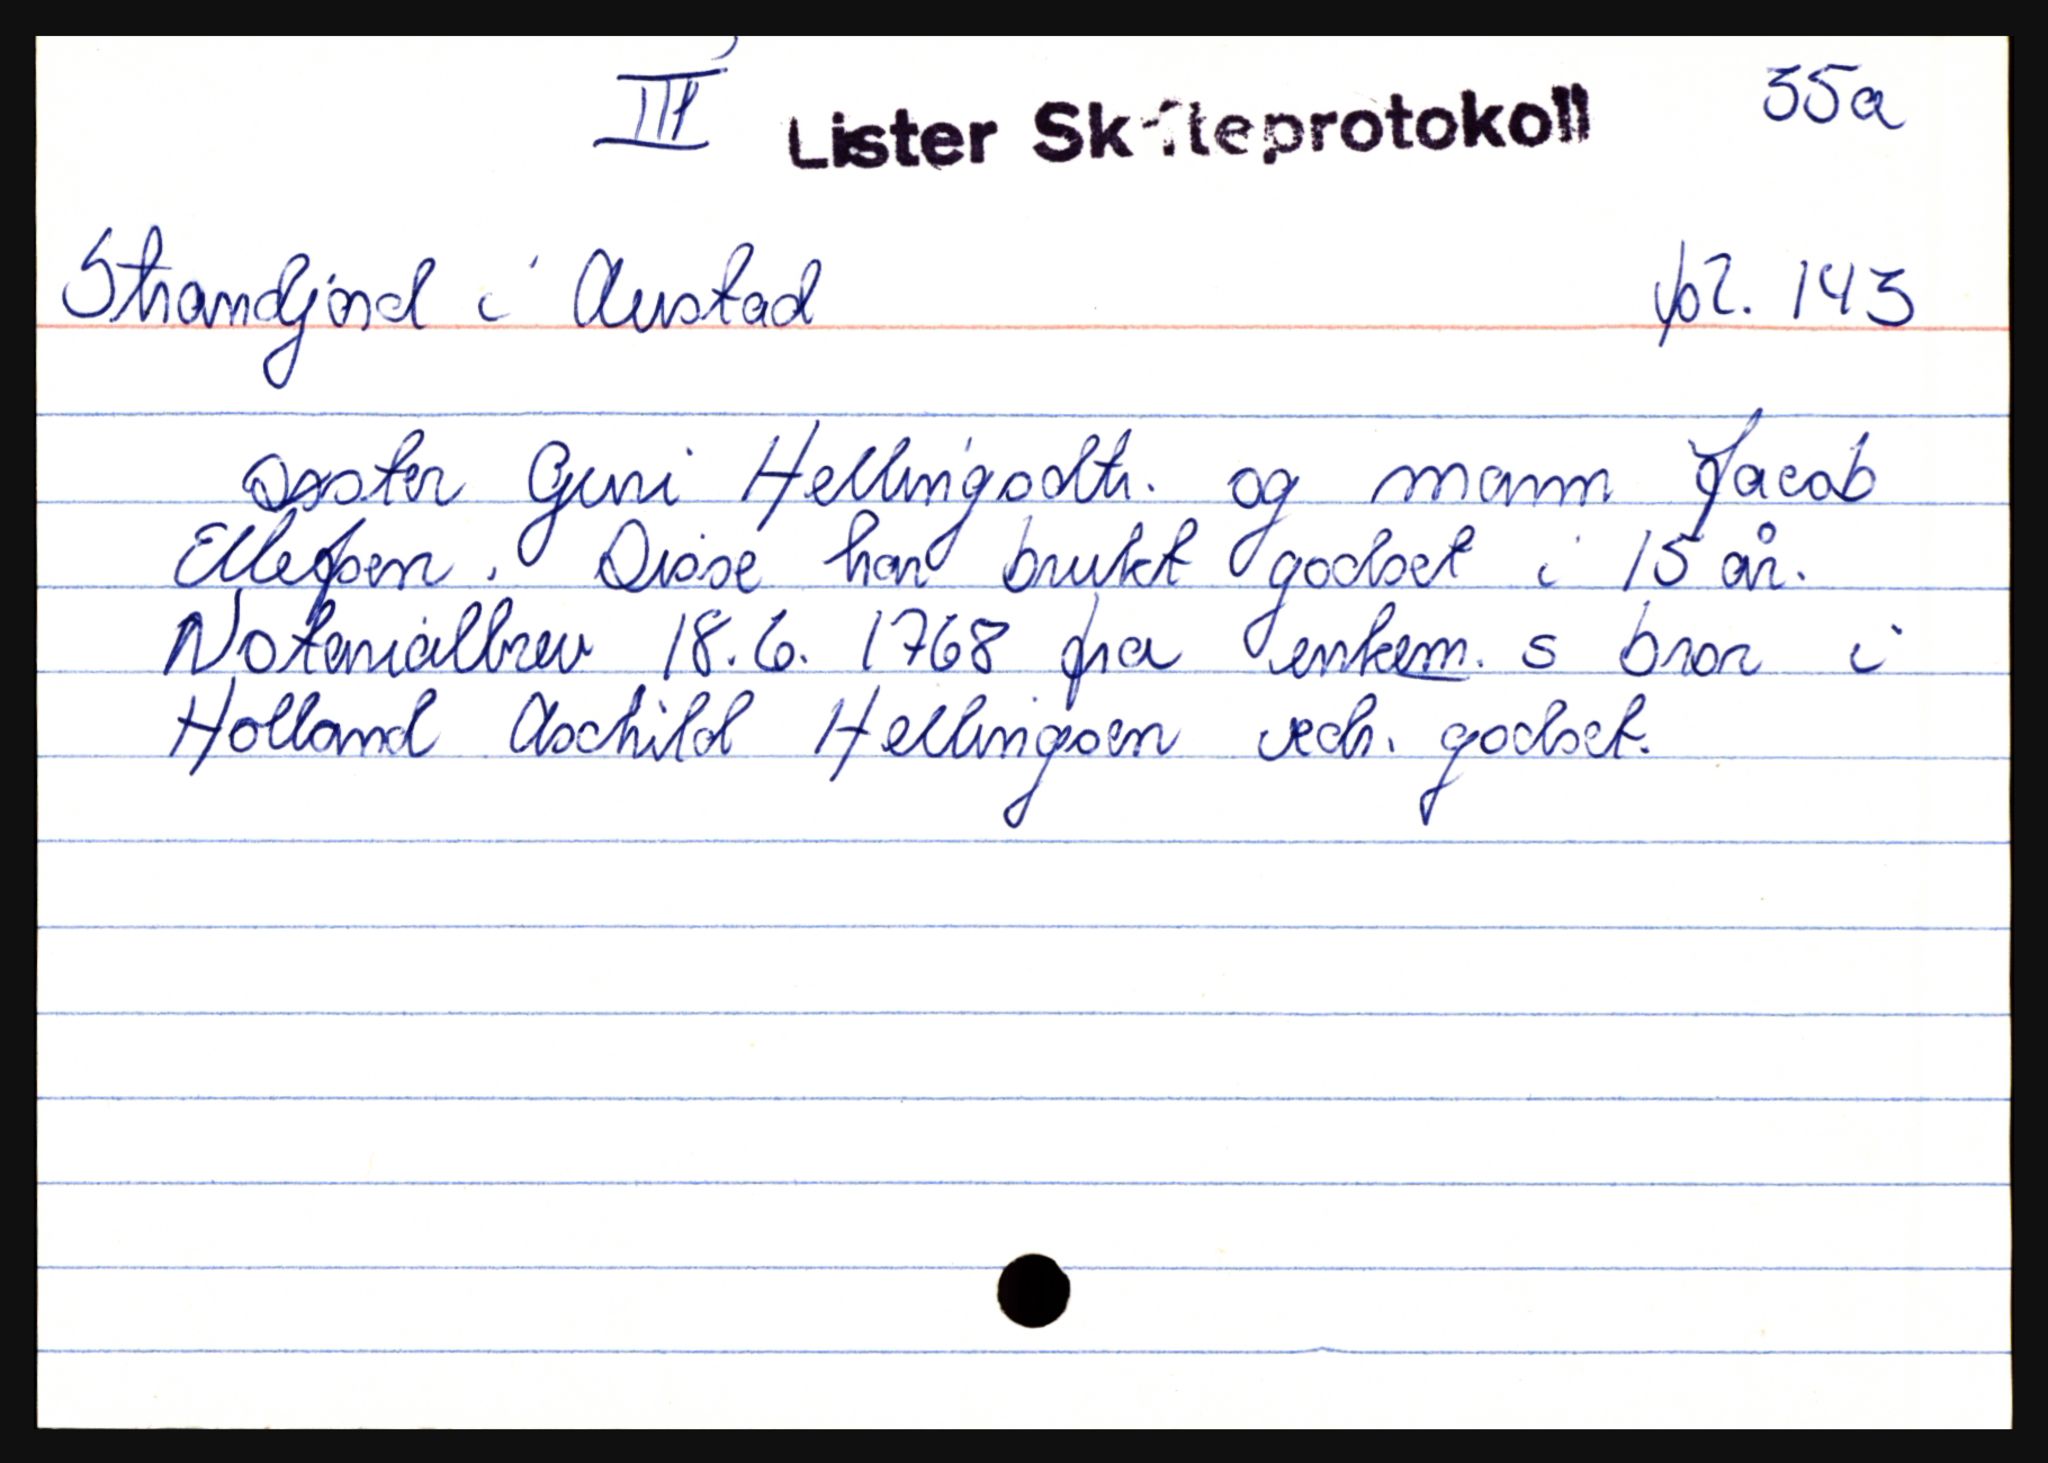 III Lister Skifteprotokoll 35a
Strandjord i Austad fol. 143
søster Guni Hellingsdtr. og mann Jacob
Ellefsen. Disse har brukt godset i 15 år.
Notarialbrev 18.6. 1768 fra enkem. s bror i
Holland Aschild Hellingsen vedr. godset.